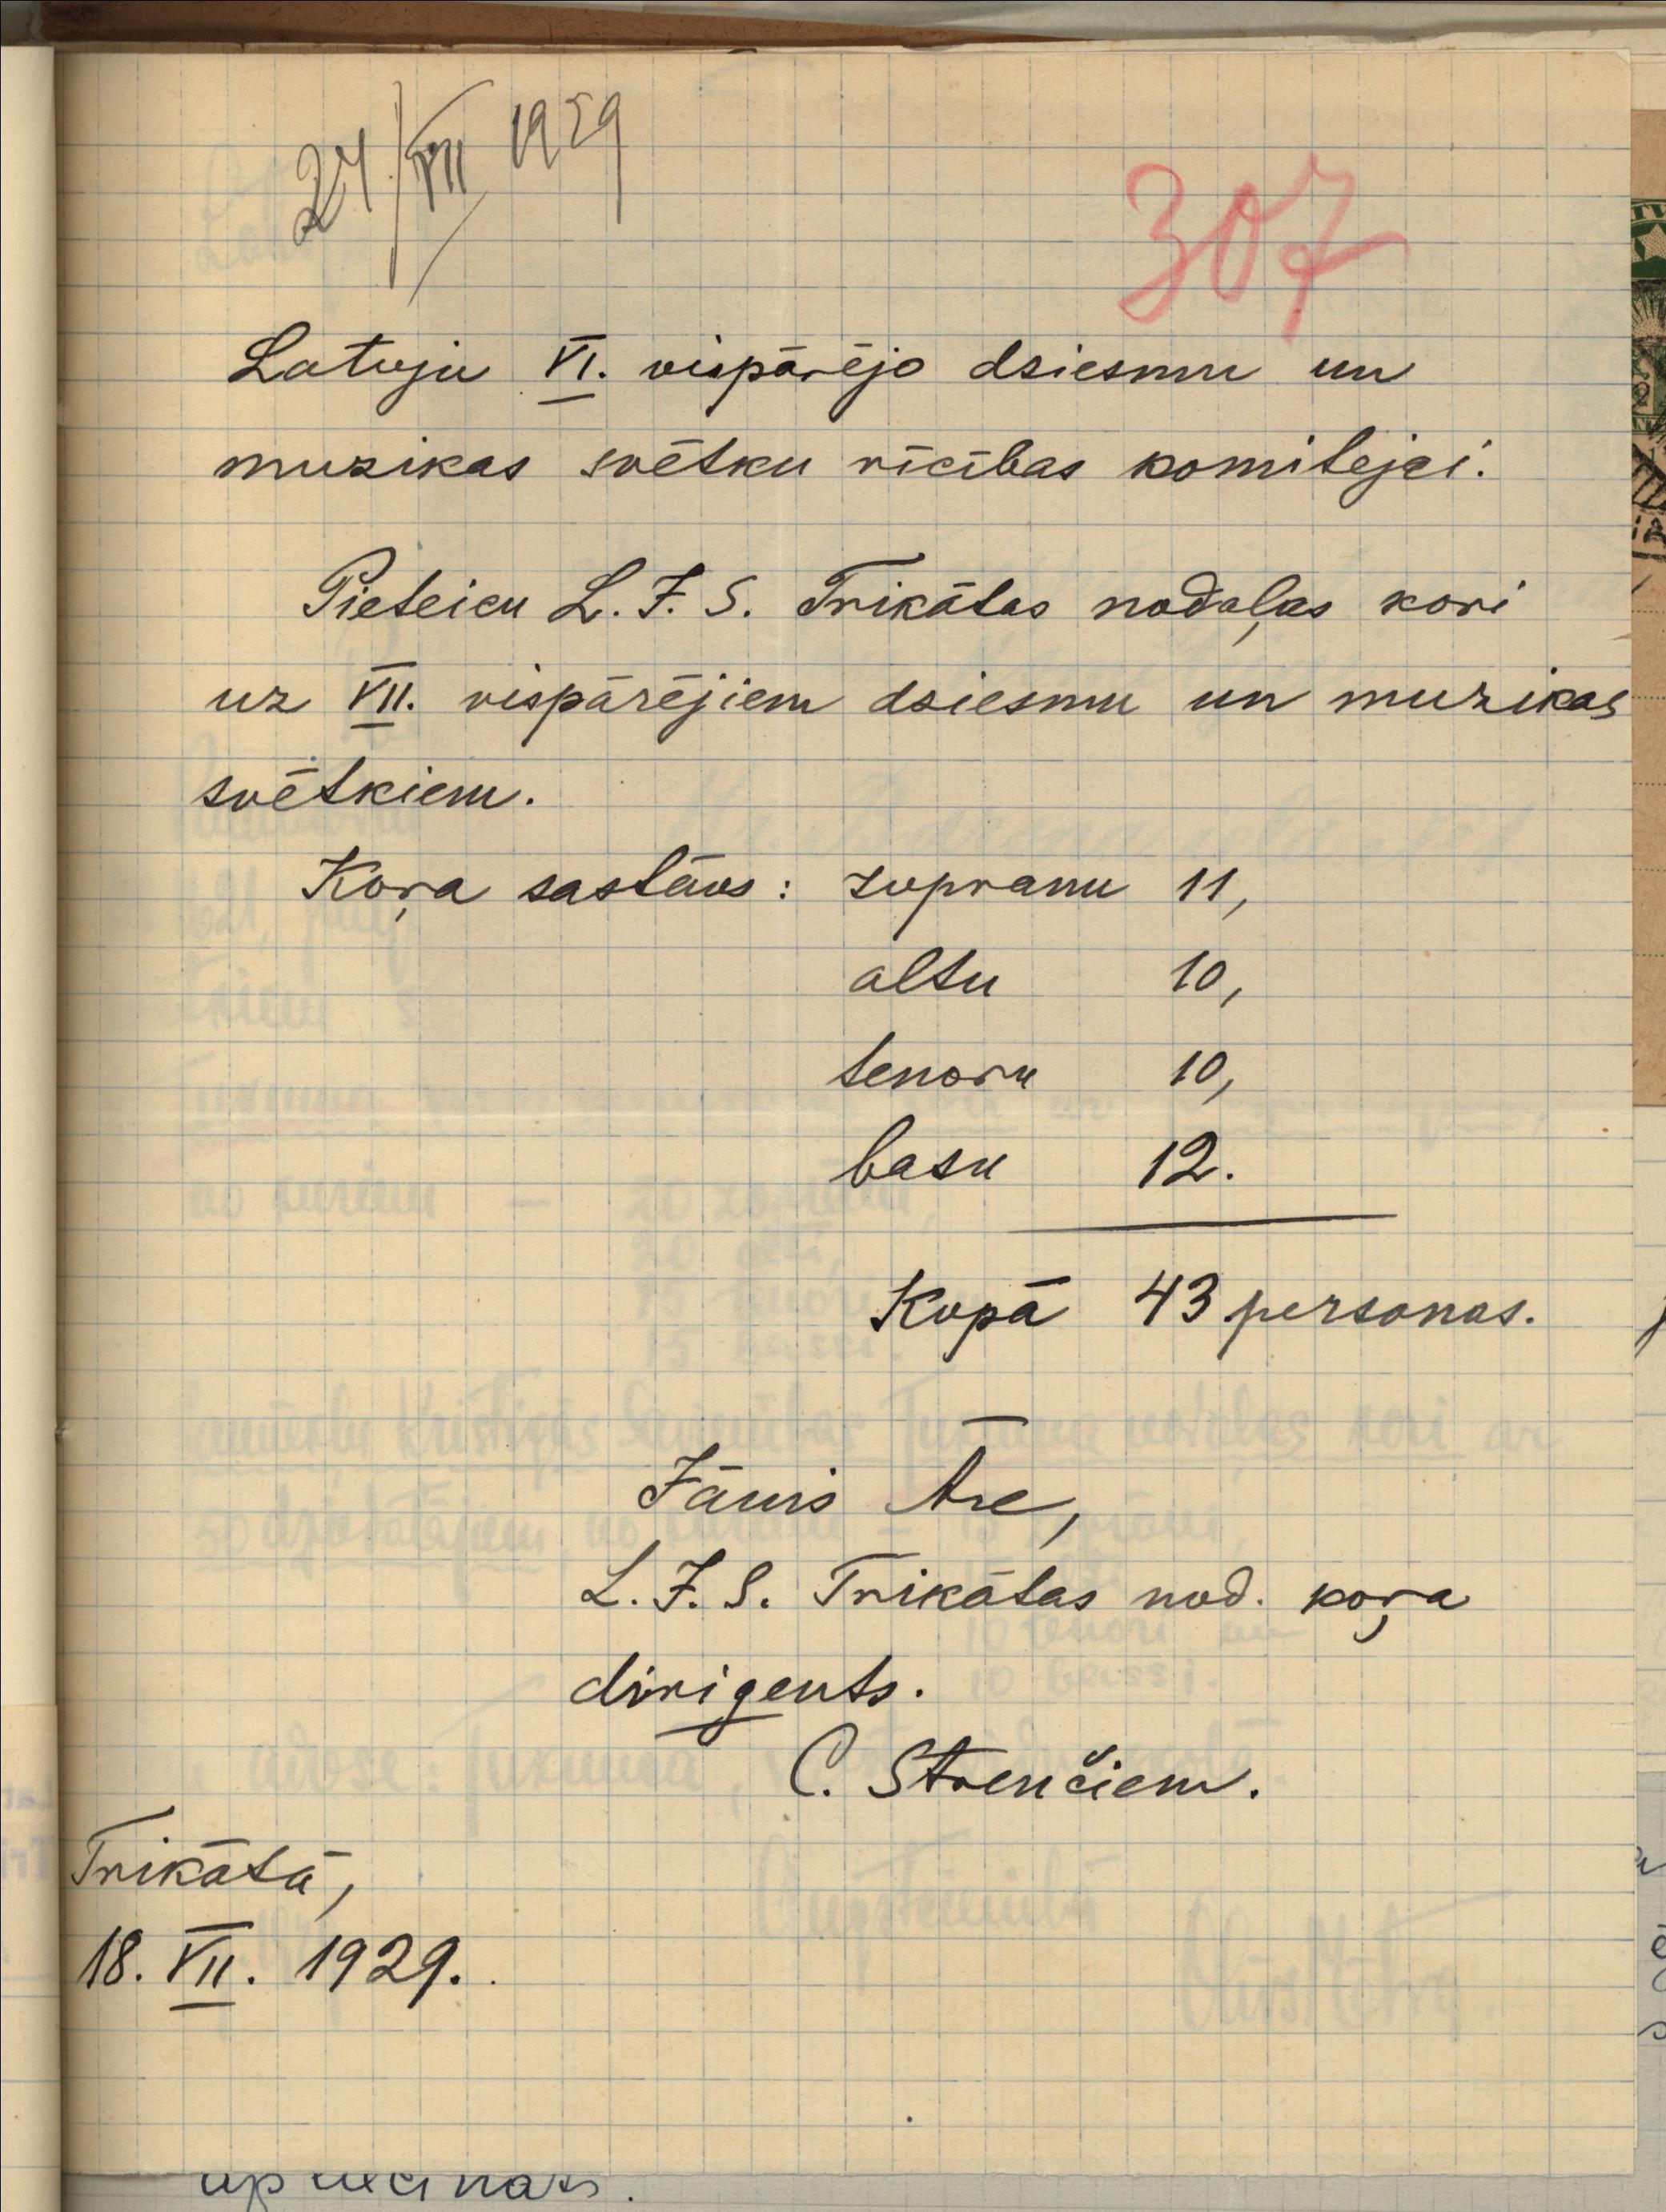 24/VII 1929
307
Latvju VI. vispārējo dziesmu un
muzikas svētku rīcības komitejai.
Pieteicu L. J. S. Trikātas nodaļas kori
uz VII. vispārējiem dziesmu un muzikas
svētkiem.
Koŗa sastāvs: supranu 11,
altu 10,
tenoru 10,
basu 12.
Kopā 43 personas.
Jānis Āre,
L. J. S. Trikātas nod. koŗa
dirigents.
C. Strenčiem.
Trikātā,
18. VII. 1929.